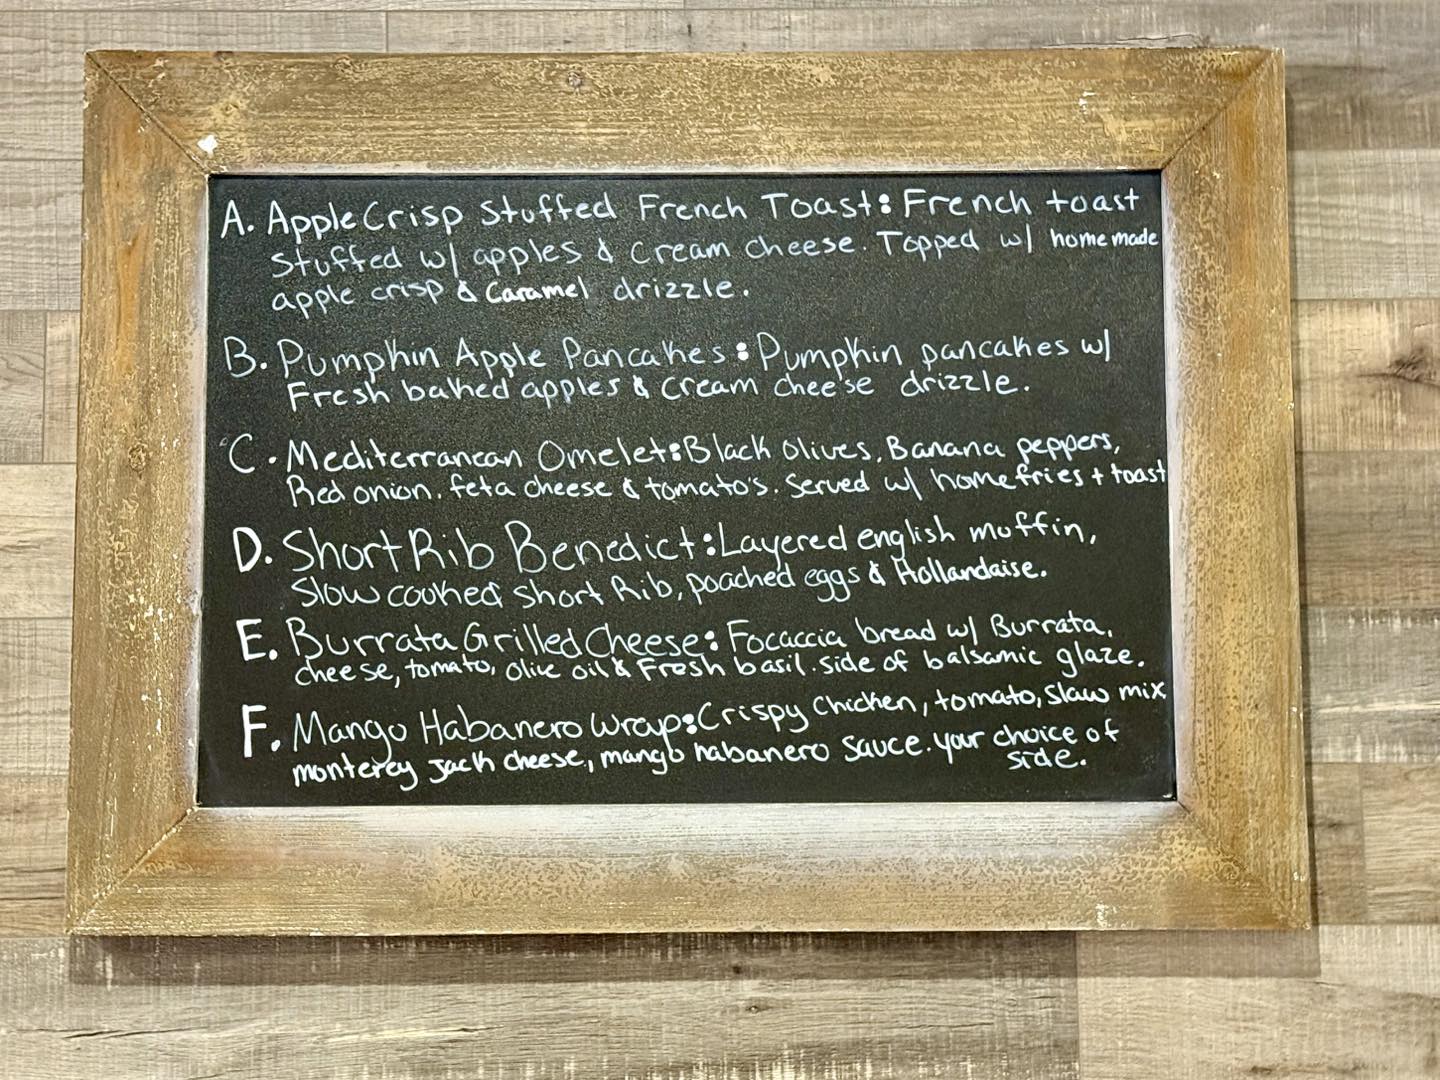 A. Apple Crisp Stuffed French Toast: French toast
stuffed w/ apples & cream cheese. Topped w/ homemade
apple crisp & Caramel drizzle.
B. Pumpkin Apple Pancakes: Pumpkin pancakes w/
Fresh baked apples & cream cheese drizzle.
C. Mediterranean Omelet: Black olives, Banana peppers,
Red onion, feta cheese & tomato's. Served w/ homefries + toast
D. Short Rib Benedict: Layered english muffin,
Slow cooked Short Rib, poached eggs & Hollandaise.
E. Burrata Grilled Cheese: Focaccia bread w/ Burrata,
cheese, tomato, olive oil & Fresh basil. side of balsamic glaze.
F. Mango Habanero Wrap: Crispy Chicken, tomato, slaw mix
monterey Jack cheese, mango habanero sauce. your choice of
side.